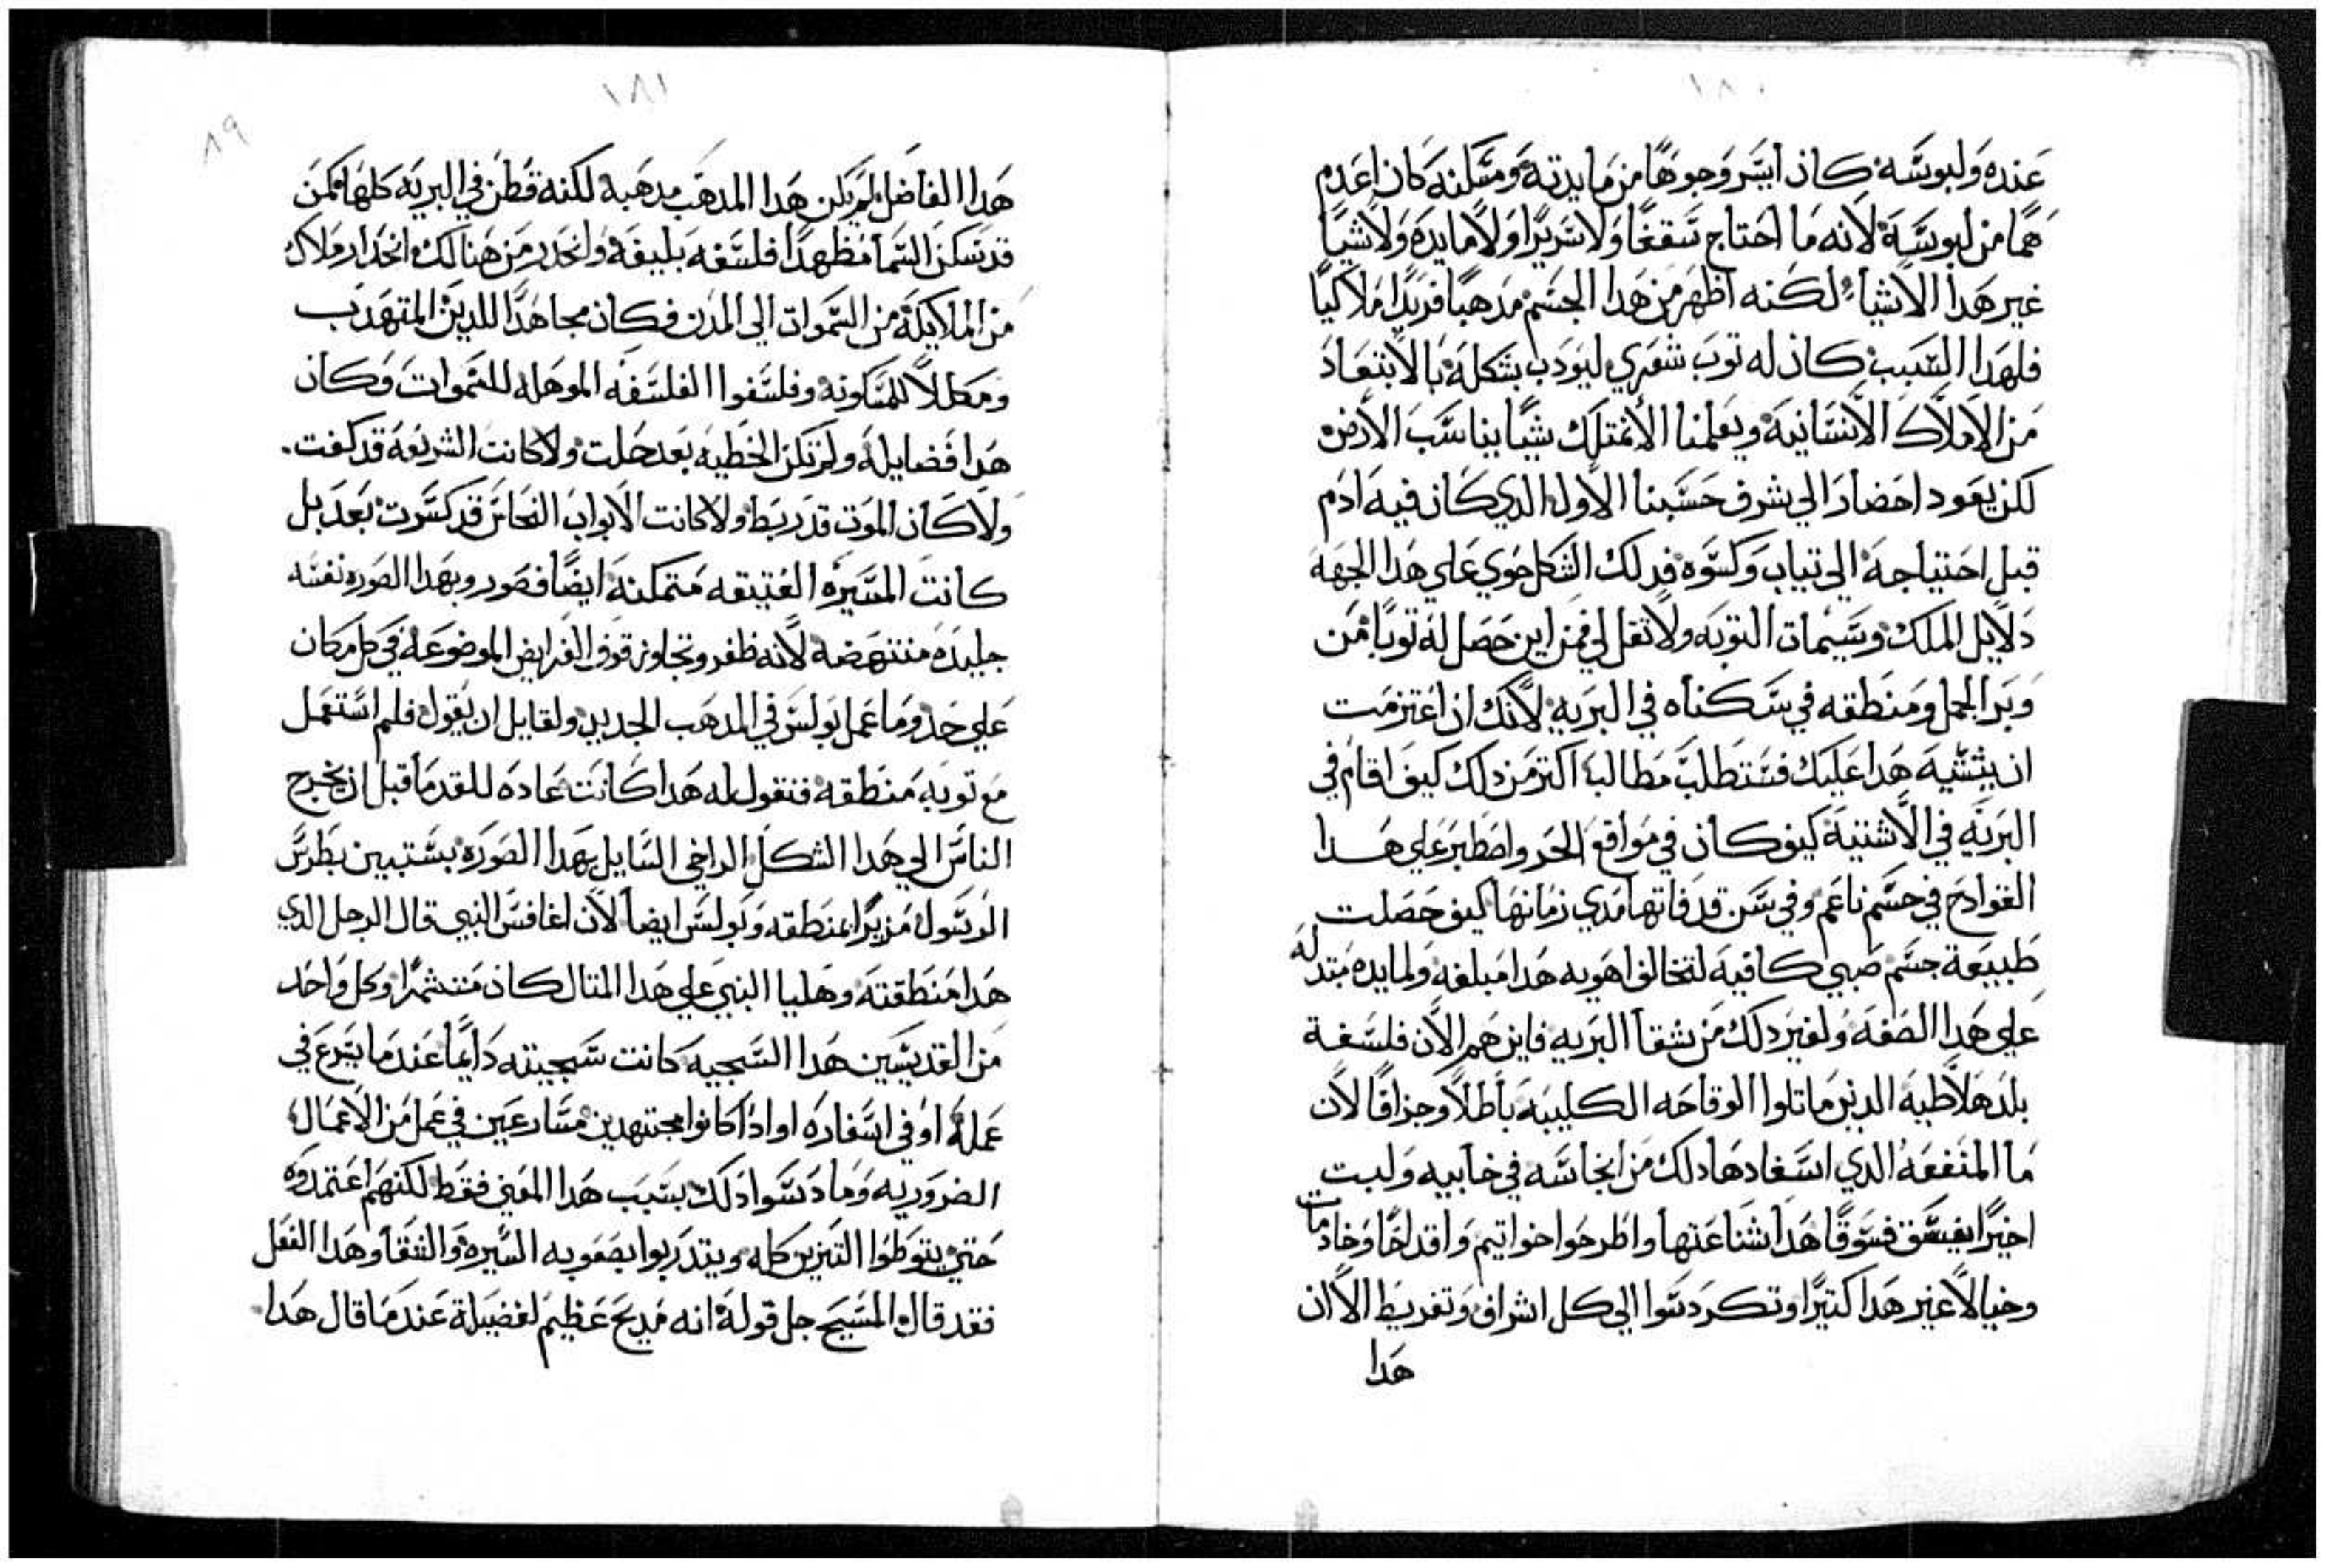 ١٨٠
عنده ولبوسه كان ايسر وجوها من مايدته ومسكنه كان اعدم
هما من لبوسة لانه ما احتاج سقفا ولا سريرا ولا مايدة ولا شيا
غير هدا الاشيا لكنه اظهر من هدا الجسم مدهبا فريدا ملاكيا
فلهدا السبب كان له توب شعري ليودب بشكله بالابتعاد
من الاملاك الانسانية ويعلمنا الا نمتلك شيا يناسب الارض
لكن يعود احضار الي شرف حسبنا الاول الدي كان فيه ادم
قبل احتياجه الي تياب وكسوه فدلك الشكل حوي علي هدا الجهة
دلايل الملك وسيمات التوبه ولا تقل لي فمن اين حصل له توبا من
وبر الجمل ومنطقه في سكناه في البريه لانك ان اعتزمت
ان يتشيه هدا عليك فستطلب مطالبا اكتر من دلك كيف اقام في
البريه في الاشتية كيف كان في مواقع الحر واصطبر علي هدا
الفوادح في جسم ناعم وفي سن قد فاتها مدي زمانها كيف حصلت
طبيعة جسم صبي كافيه لتخالف اهويه هدا مبلغه ولمايده مبتدله
علي هدا الصفه ولغير دلك من شقا البريه فاين هم الان فلسفة
بلد هلاطية الدين ماتلوا الوقاحه الكليبه باطلا وجزافا لان
ما المنفعه الدي استفادها دلك من انجاسه في خابيه ولبت
اخيرا يفسق فسوقا هدا شناعتها واطرحوا خواتيم واقداحا وخادمات
وخيالا غير هدا كتيرا وتكردسوا الي كل اشراف وتفريط الا ان
هدا
١٨١
٨٩
هدا الفاضل لم يكن هدا المدهب مدهبه لكنه قطن في البريه كلها كمن
قد سكن السما مظهدا فلسفه بليغه وانحدر من هنالك انحدار ملاك
من الملايكة من السموات الي المدن فكان مجاهدا للدين المتهدب
ومكللا للمسكونه وفلسفوا الفلسفه الموهله للسموات وكان
هدا فضايله ولم تكن الخطيه بعد حلت ولا كانت الشريعه قد كفت.
ولا كان الموت قد ربط ولا كانت الابواب النحاس قد كسرت بعد بل
كانت السيره العتيقه متمكنه ايضا فصور وبهدا الصوره نفسه
جليده منتهضه لانه ظفر وتجاوز فوق الفرايض الموضوعة في كل مكان
علي حد وما عمل بولس في المدهب الجديد ولقايل ان يقول فلم استعمل
مع توبه منطقه فنقول له هدا كانت عاده للقدما قبل ان يخرج
الناس الي هدا الشكل الراخي السايل بهدا الصوره يستبين بطرس
الرسول مزيرا بمنطقه وبولس ايضا لان اغافس النبي قال الرجل الدي
هدا منطقته وهليا النبي علي هدا المتال كان متشمرا وكل واحد
من القديسين هدا السجيه كانت سجيته دايما عندما يسرع في
عمله او في اسفاره او ادا كانوا مجتهدين مسارعين في عمل من الاعمال
الضروريه وما دسوا دلك بسبب هدا المعني فقط لكنهم اعتمدوه
حتي يتوطوا التزين كله ويتدربوا بصعوبه السيره والشقا وهدا الفعل
فقد قال المسيح جل قوله انه مديح عظيم لفضيلة عندما قال هدا